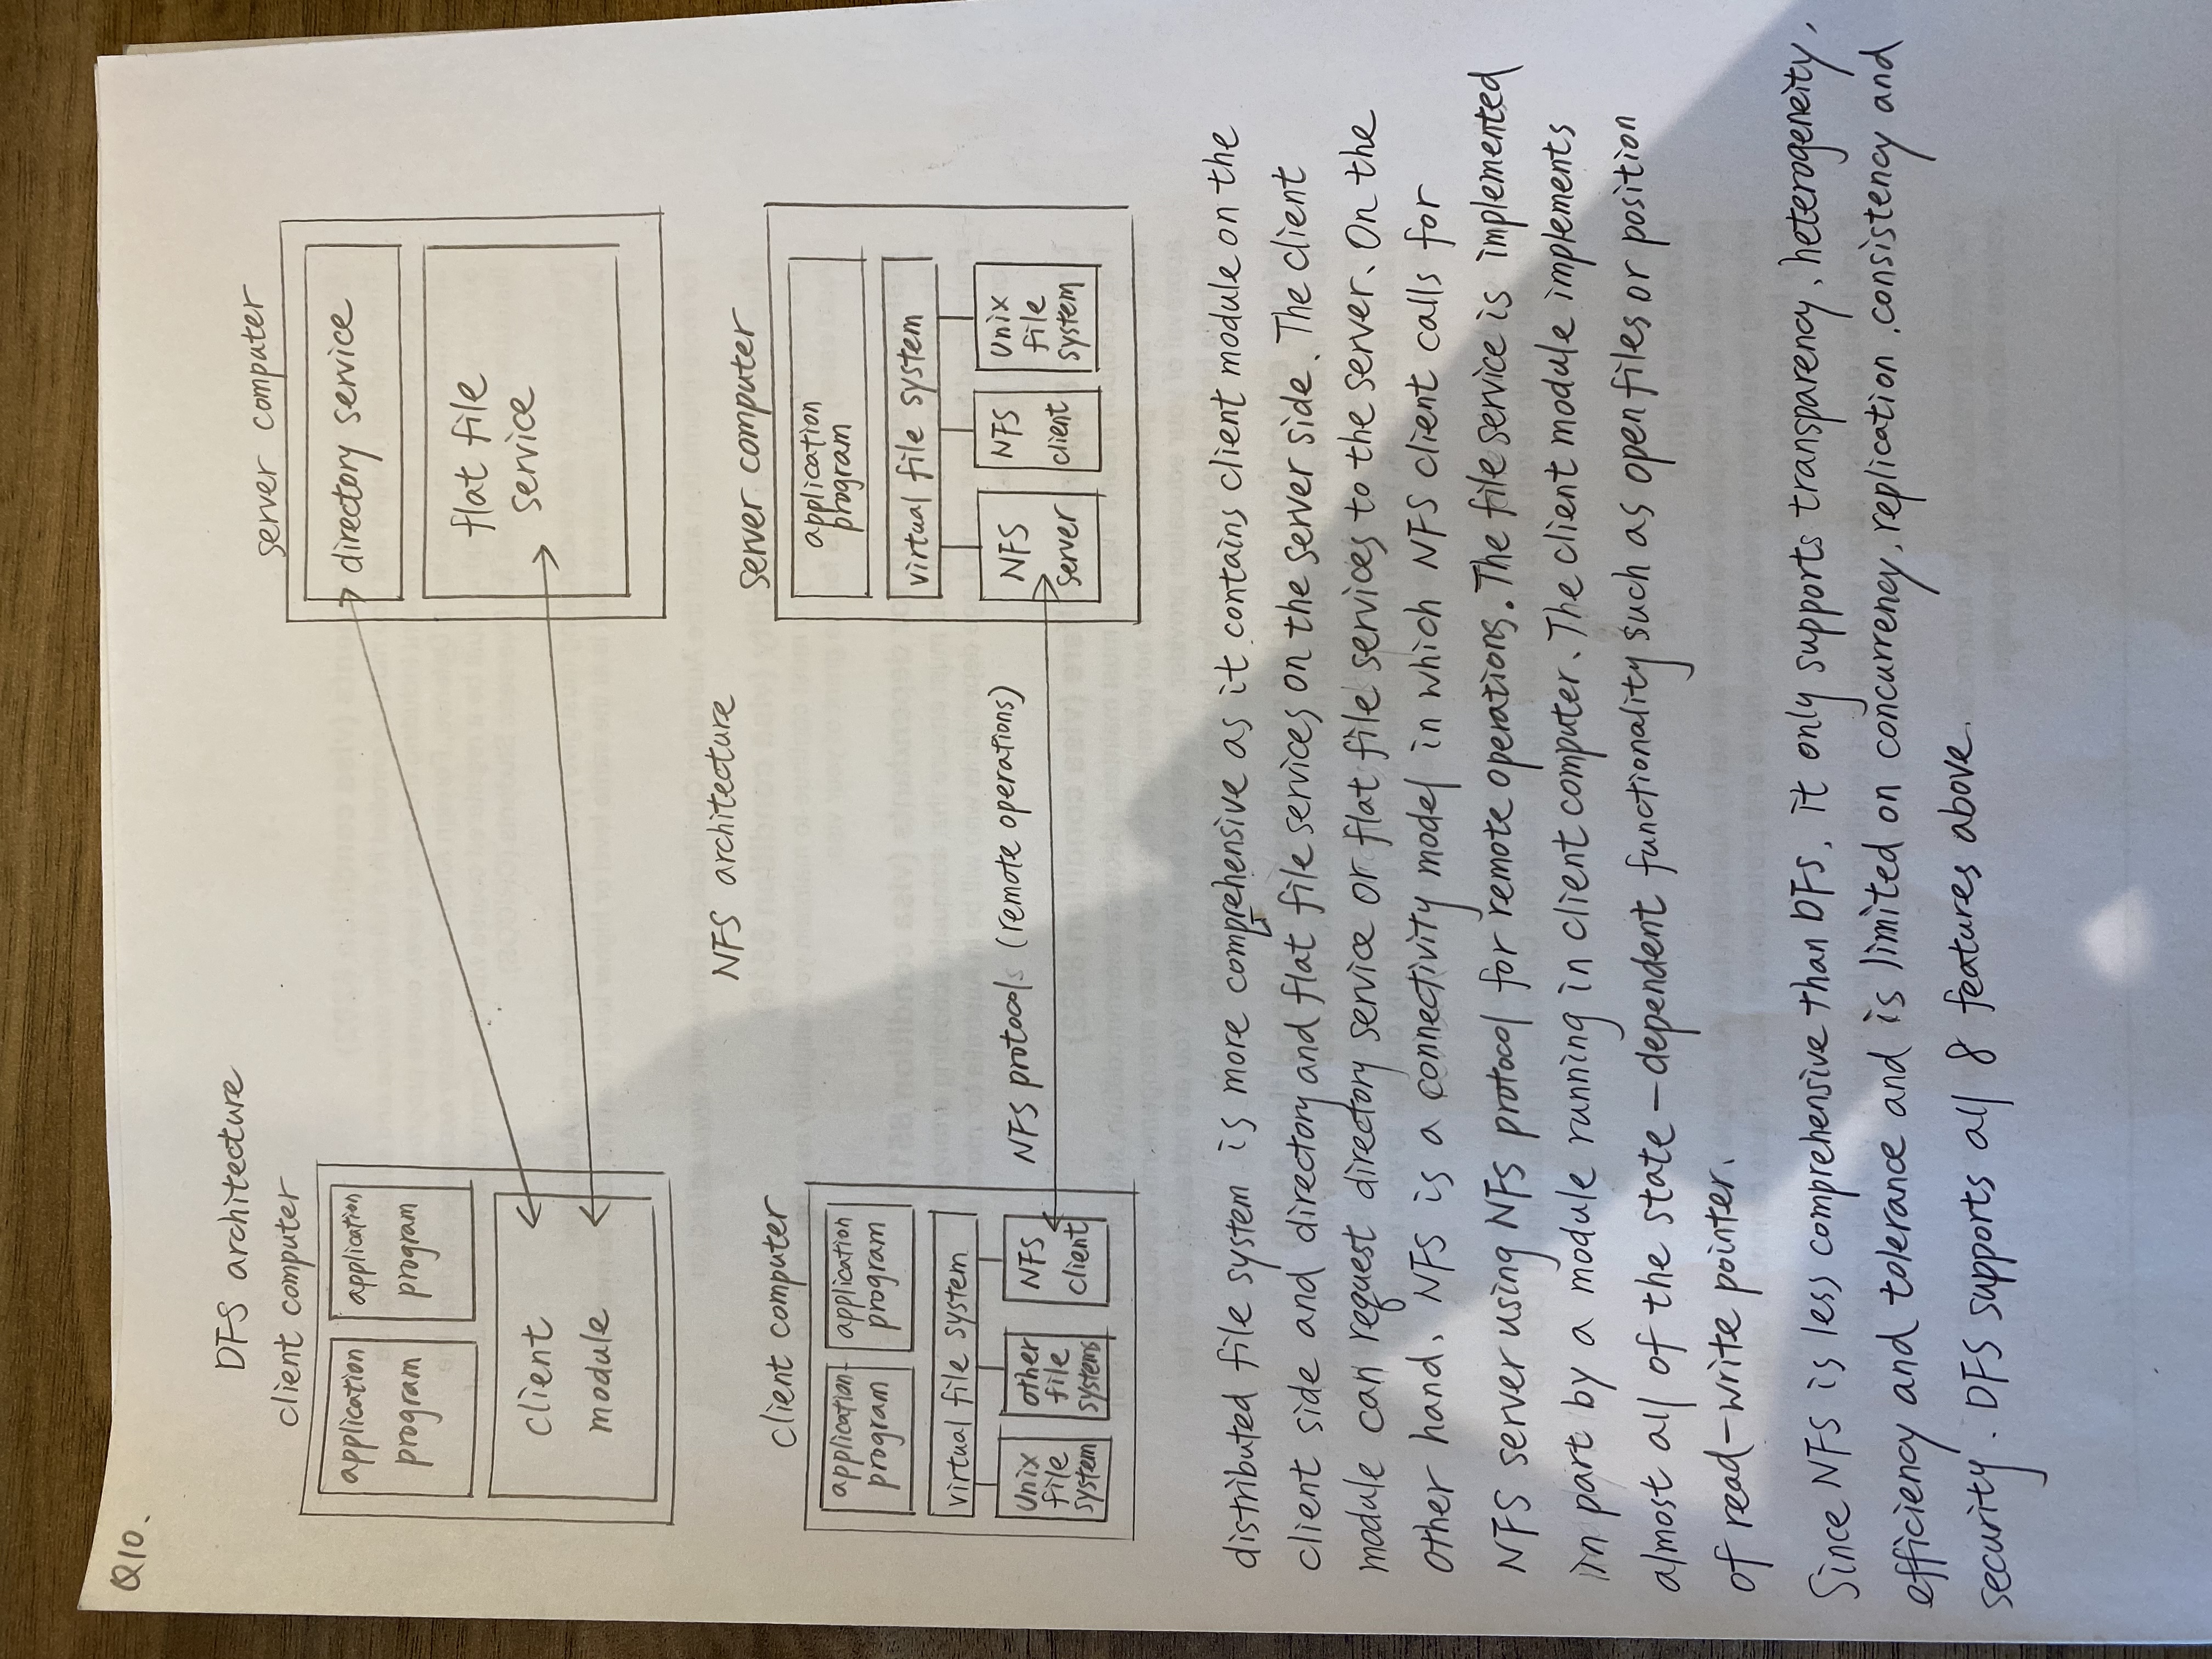 Q10.
DFS architecture
client computer
server computer
application program
application program
client module
directory service
flat file service
NFS architecture
client computer
server computer
application program
application program
virtual file system
Unix file system
other file systems
NFS client
NFS protocols (remote operations)
application program
virtual file system
NFS server
NFS client
Unix file system
distributed file system is more comprehensive as it contains client module on the
client side and directory and flat file services on the server side. The client
module can request directory service or flat file services to the server. On the
other hand, NFS is a connectivity model in which NFS client calls for
NFS server using NFS protocol for remote operations. The file service is implemented
in part by a module running in client computer. The client module implements
almost all of the state-dependent functionality such as open files or position
of read-write pointer.
Since NFS is less comprehensive than DFS, it only supports transparency, heterogeneity,
efficiency and tolerance and is limited on concurrency, replication, consistency and
security. DFS supports all 8 features above.